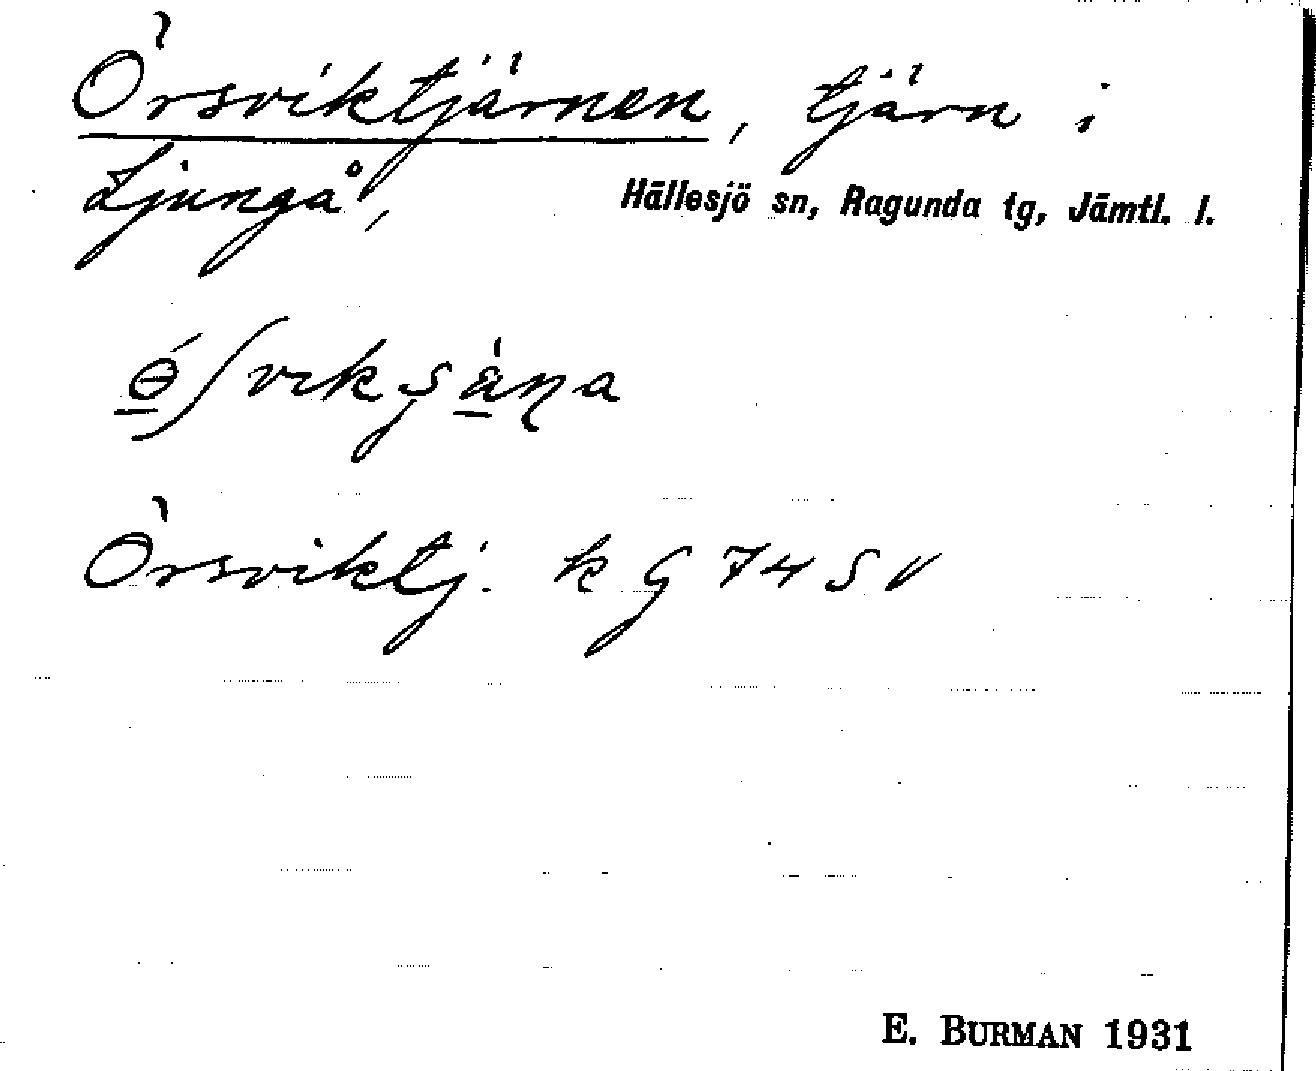 Örsviktjärnen, tjärn i
Ljungå, Hällesjö sn, Ragunda tg, Jämtl. l.
Örsviktj. k G 74 SV
E. BURMAN 1931